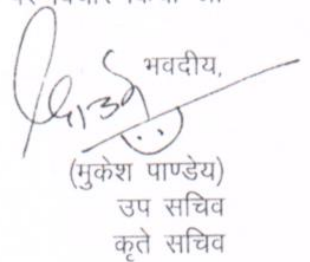 भवदीय,
(मुकेश पाण्डेय)
उप सचिव
कृते सचिव